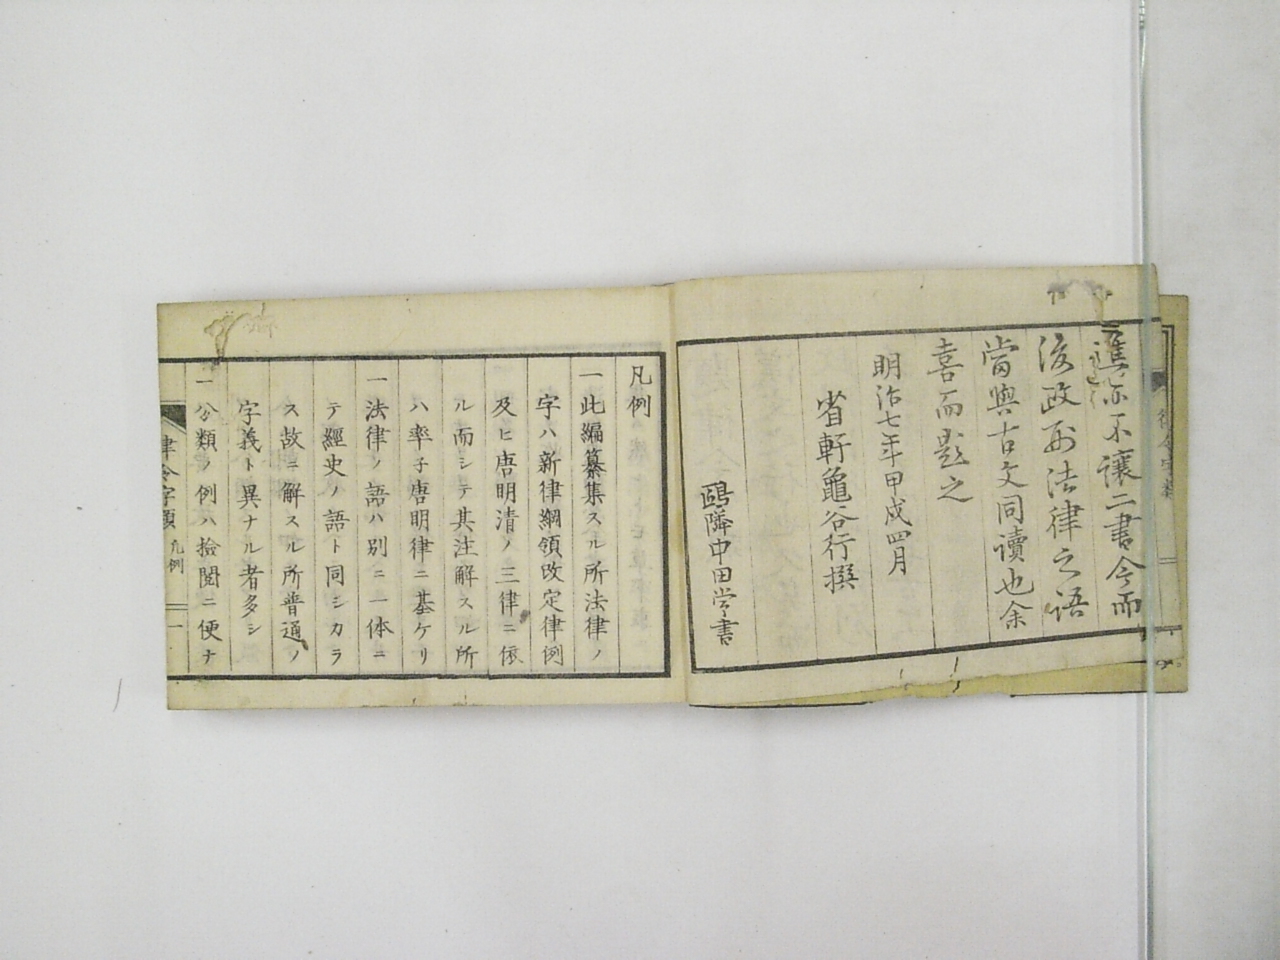 亦不讓二書今而
後政刑法律之語
當與古文同讀也余
喜而題之
明治七年甲戌四月
省軒龜谷行撰
鷗隣中田学書
凡例
一此編纂集スル所法律ノ
字ハ新律綱領改定律例
及ヒ唐明清ノ三律ニ依
ル而シテ其注解スル所
ハ率子唐明律ニ基ケリ
一法律ノ語ハ別ニ一体ニ
テ經史ノ語ト同シカラ
ス故ニ解スル所普通ノ
字義ト異ナル者多シ
一分類ノ例ハ撿閲ニ便ナ
律令字類 凡例 一